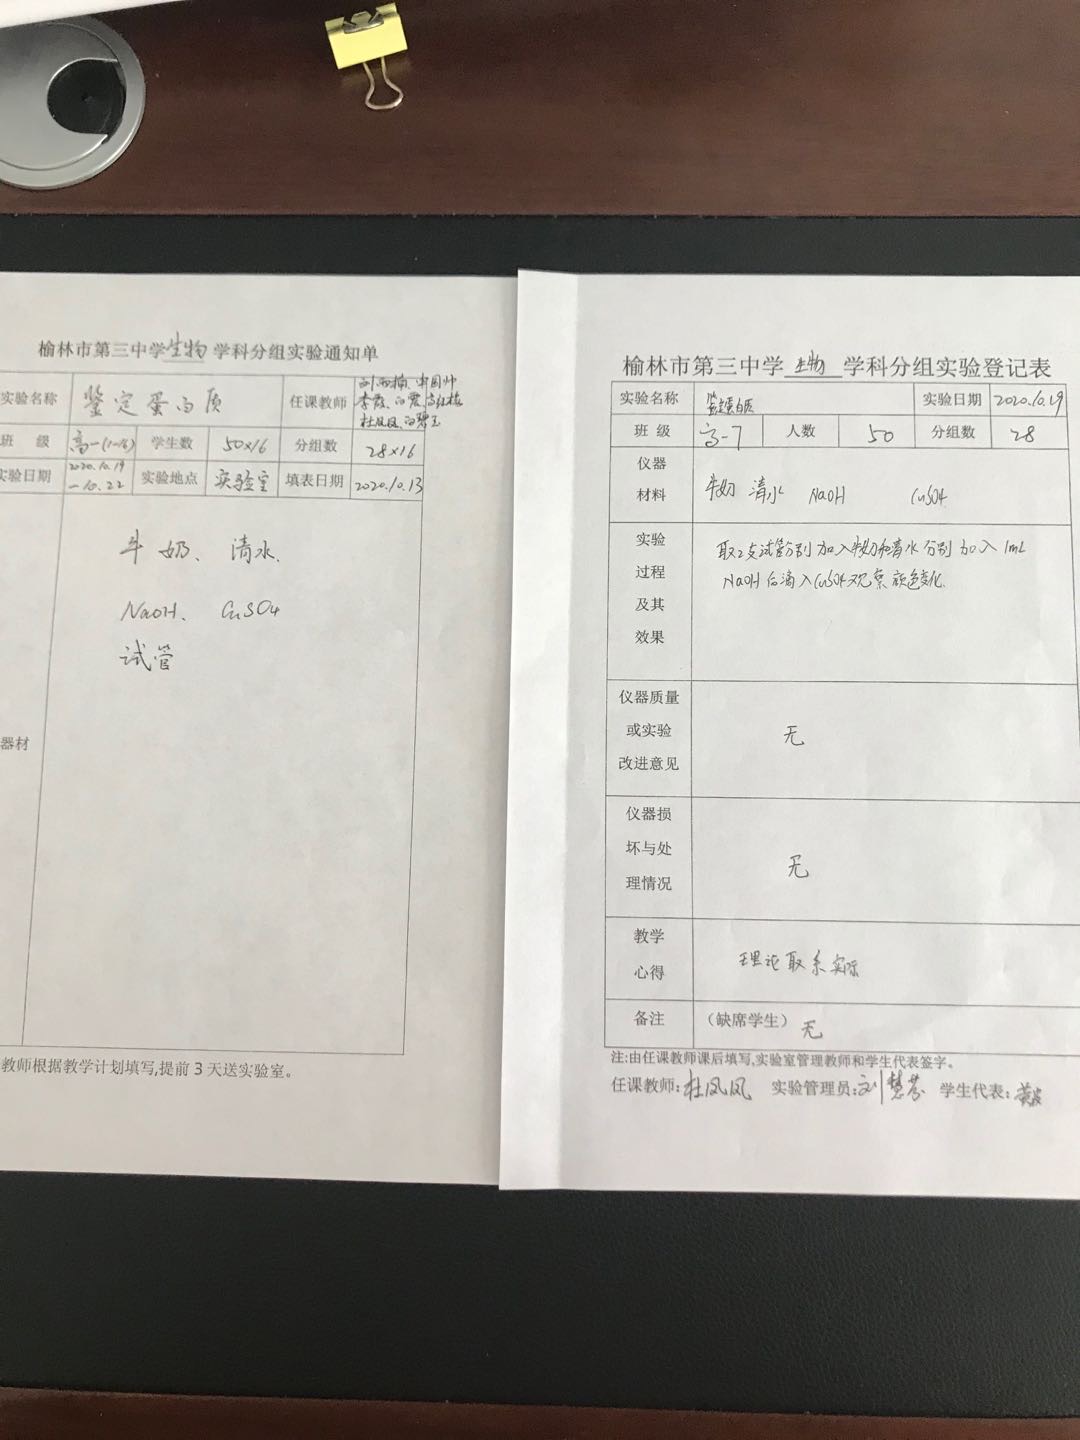 榆林市第三中学生物学科分组实验通知单
实验名称 鉴定蛋白质 任课教师
杜凤凤、白碧玉
班 级 高一(1-16) 学生数 50×16 分组数 28×16
实验日期 2020.10.19 实验地点 实验室 填表日期 2020.10.13
-10.22
牛奶、清水、
NaOH、 CuSO4
试管
器材
教师根据教学计划填写,提前3天送实验室。
榆林市第三中学 生物 学科分组实验登记表
实验名称 鉴定蛋白质 实验日期 2020.10.19
班 级 高一7 人数 50 分组数 28
仪器
材料
牛奶 清水 NaOH CuSO4
实验
过程
及其
效果
取2支试管分别加入牛奶和清水分别加入1mL
NaOH后滴入CuSO4观察颜色变化.
仪器质量
或实验
改进意见
无
仪器损
坏与处
理情况
无
教学
心得
理论联系实际
备注 (缺席学生) 无
注:由任课教师课后填写,实验室管理教师和学生代表签字。
任课教师:杜凤凤 实验管理员:刘慧芬 学生代表: